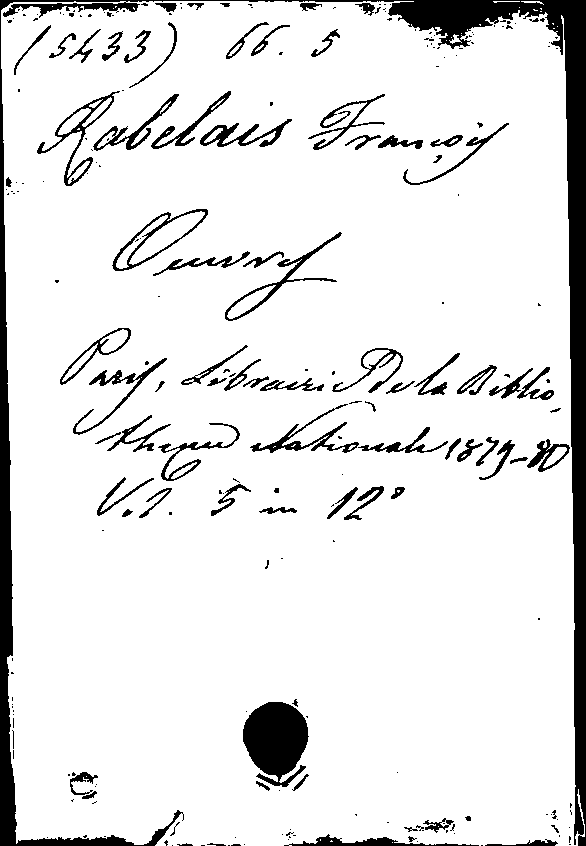 (5433) 66. 5
Rabelais François
Oeuvres
Paris, Librairie de la Biblio-
theque Nationale 1879-80
V.l. 5 in 12°